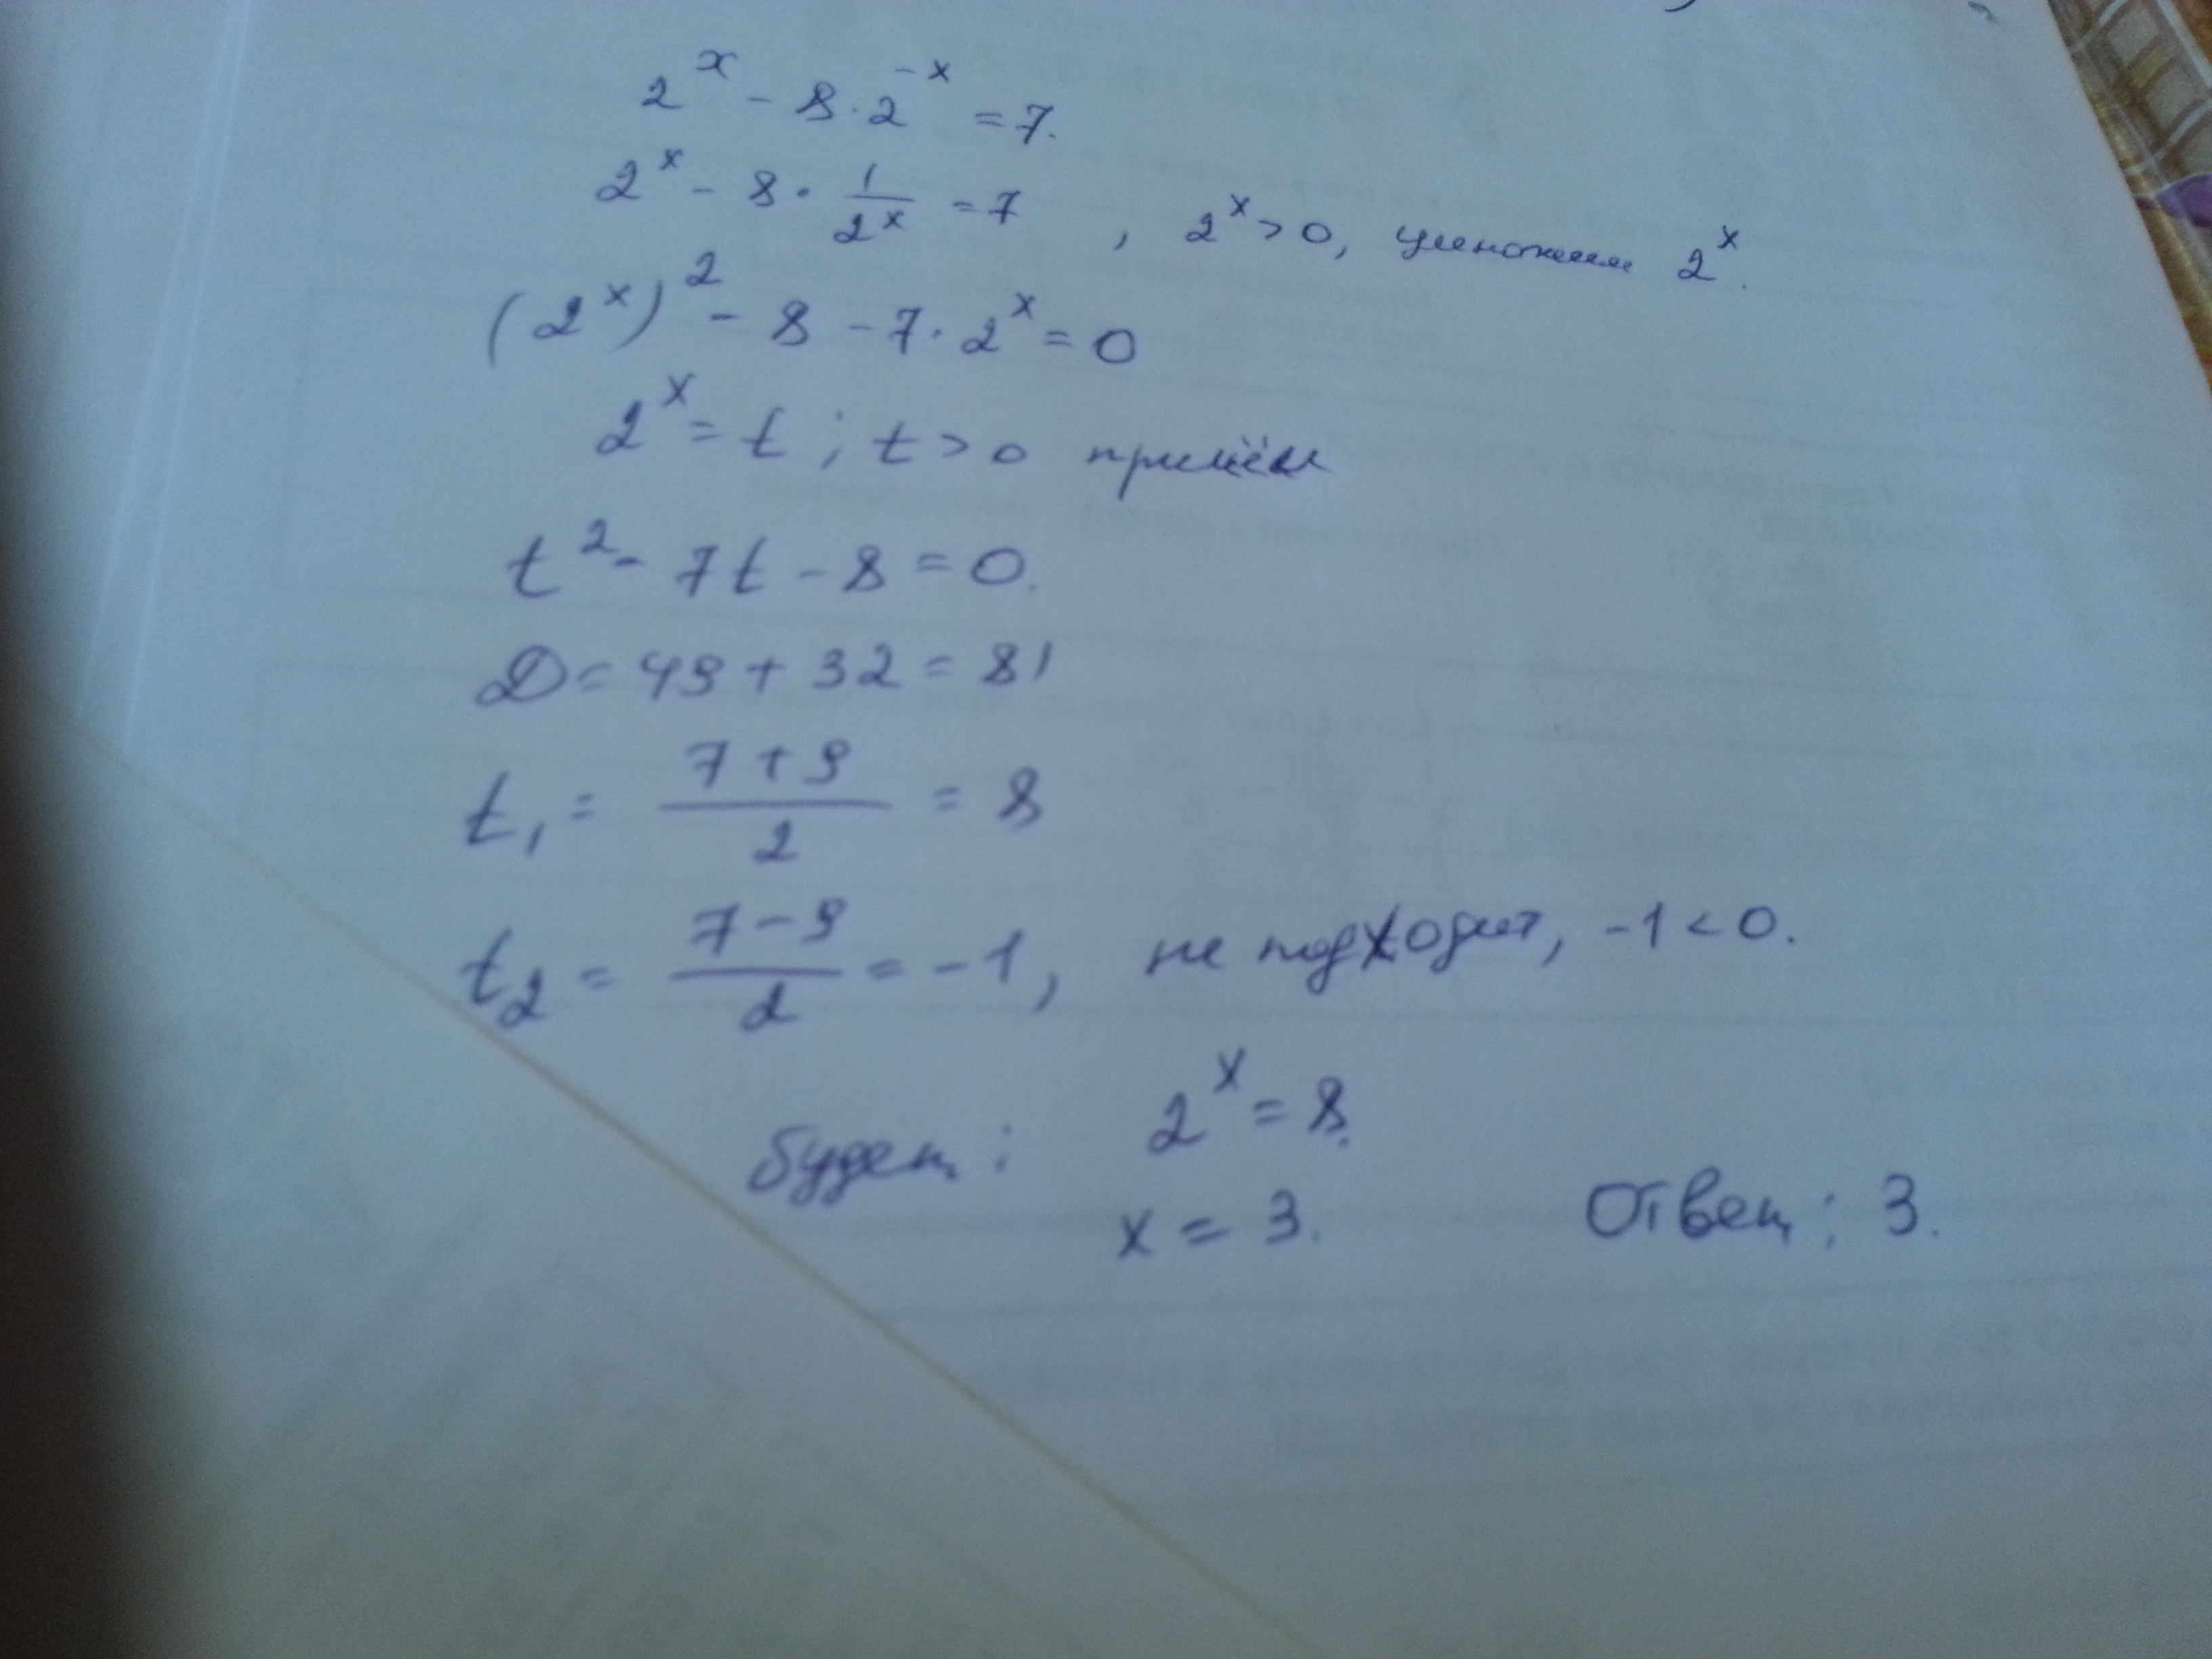 2^x - 8·2^{-x} = 7.
2^x - 8 · 1/2^x = 7 , 2^x > 0, умножим 2^x.
(2^x)^2 - 8 - 7·2^x = 0
2^x = t ; t > 0 причём
t^2 - 7t - 8 = 0.
D = 49 + 32 = 81
t_1 = (7+9)/2 = 8
t_2 = (7-9)/2 = -1, не подходит, -1 < 0.
будет: 2^x = 8.
x = 3. Ответ: 3.